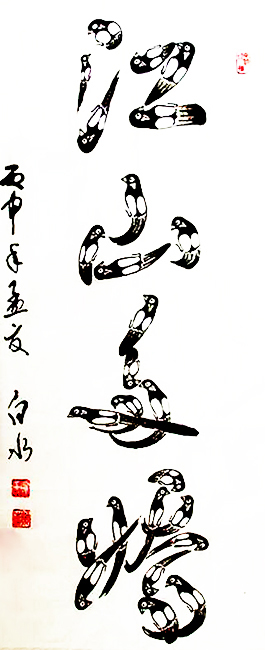 江山多娇
丙申年孟夏 白水